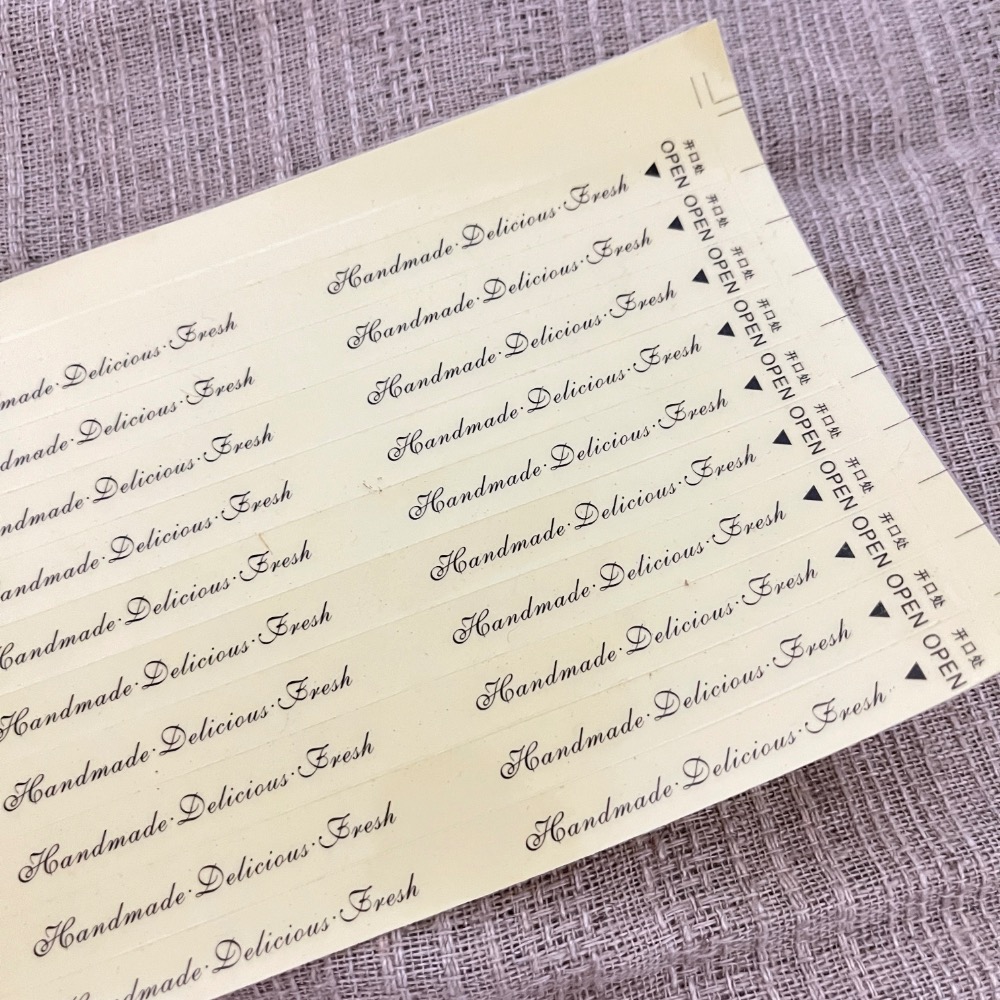 made·Delicious·Fresh Handmade·Delicious·Fresh OPEN 开口处
dmade·Delicious·Fresh Handmade·Delicious·Fresh OPEN 开口处
ndmade·Delicious·Fresh Handmade·Delicious·Fresh OPEN 开口处
andmade·Delicious·Fresh Handmade·Delicious·Fresh OPEN 开口处
Handmade·Delicious·Fresh Handmade·Delicious·Fresh OPEN 开口处
Handmade·Delicious·Fresh Handmade·Delicious·Fresh OPEN 开口处
Handmade·Delicious·Fresh Handmade·Delicious·Fresh OPEN 开口处
Handmade·Delicious·Fresh Handmade·Delicious·Fresh OPEN 开口处
Handmade·Delicious·Fresh Handmade·Delicious·Fresh OPEN 开口处
dmade·Delicious·Fresh Handmade·Delicious·Fresh OPEN 开口处